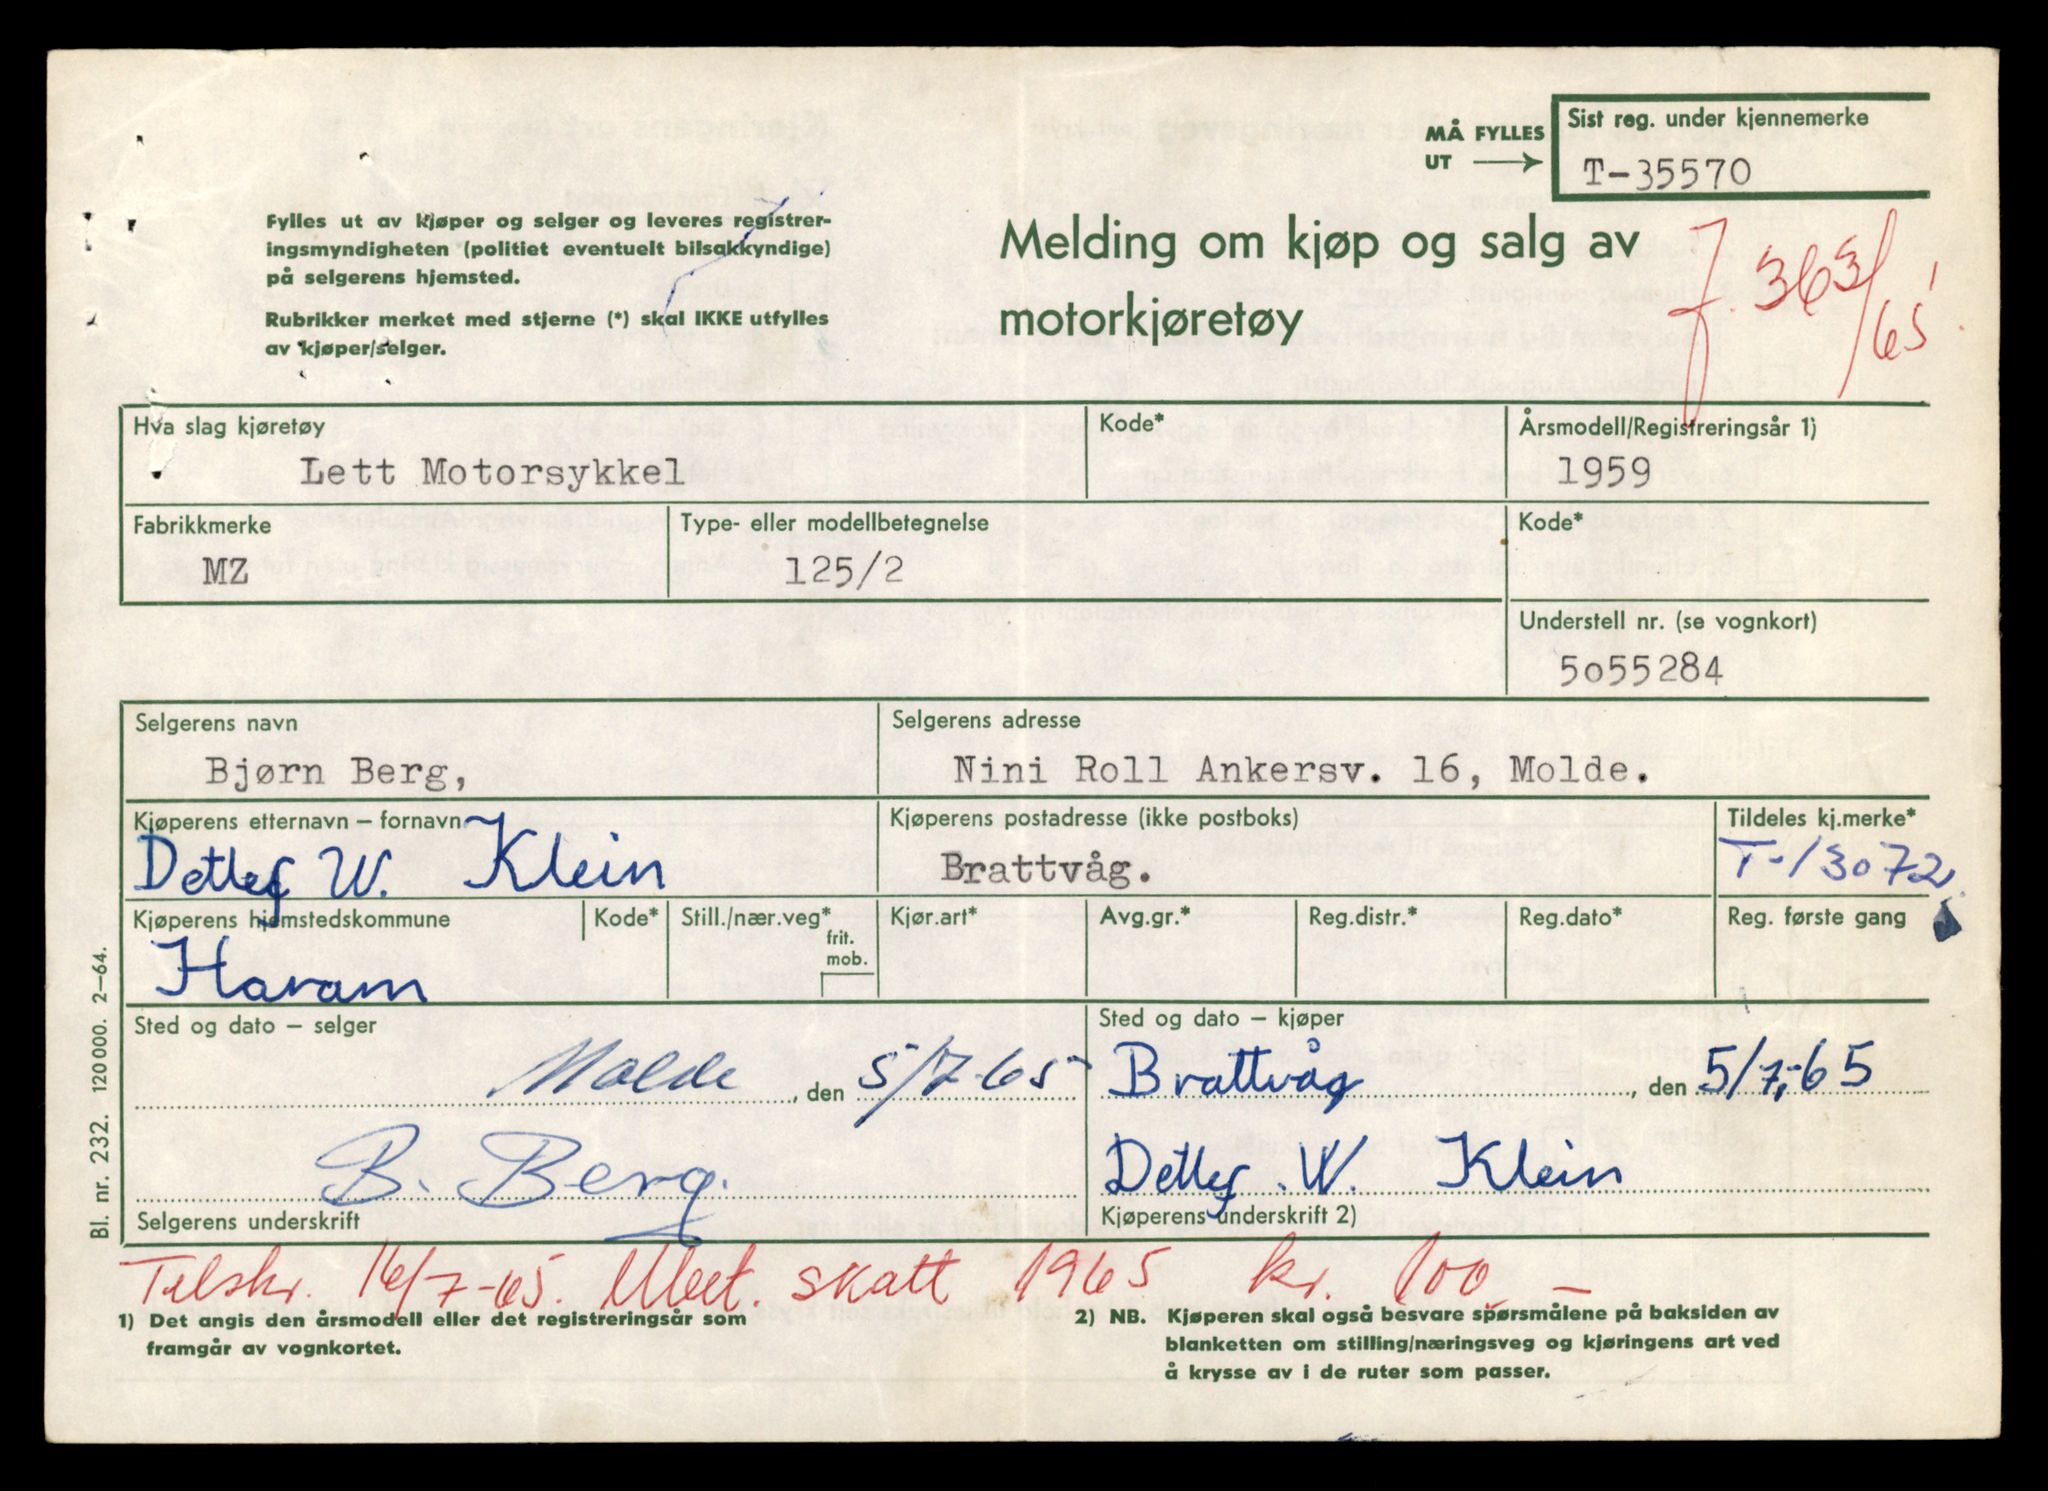 MÅ FYLLES
UT
Sist reg. under kjennemerke
T-35570
Fylles ut av kjøper og selger og leveres registrer-
ingsmyndigheten (politiet eventuelt bilsakkyndige)
på selgerens hjemsted.
Rubrikker merket med stjerne (*) skal IKKE utfylles
av kjøper/selger.
Melding om kjøp og salg av
motorkjøretøy
J. 363/65
Hva slag kjøretøy
Lett Motorsykkel
Kode*
Årsmodell/Registreringsår 1)
1959
Fabrikkmerke
MZ
Type- eller modellbetegnelse
125/2
Kode*
Understell nr. (se vognkort)
5o55284
Selgerens navn
Bjørn Berg,
Selgerens adresse
Nini Roll Ankersv. 16, Molde.
Kjøperens etternavn – fornavn
Detlef W. Klein
Kjøperens postadresse (ikke postboks)
Brattvåg.
Tildeles kj.merke*
T-13072
Kjøperens hjemstedskommune
Haram
Kode*
Still./nær.veg*
frit.
mob.
Kjør.art*
Avg.gr.*
Reg.distr.*
Reg.dato*
Reg. første gang
Sted og dato – selger
Molde, den 5/7-65
Sted og dato – kjøper
Brattvåg, den 5/7,-65
B. Berg.
Selgerens underskrift
Detlef. W. Klein
Kjøperens underskrift 2)
Bl. nr. 232. 120 000. 2–64.
Tilskr. 16/7-65. Vedt. skatt 1965 kr. 100,-
1) Det angis den årsmodell eller det registreringsår som
framgår av vognkortet.
2) NB. Kjøperen skal også besvare spørsmålene på baksiden av
blanketten om stilling/næringsveg og kjøringens art ved
å krysse av i de ruter som passer.